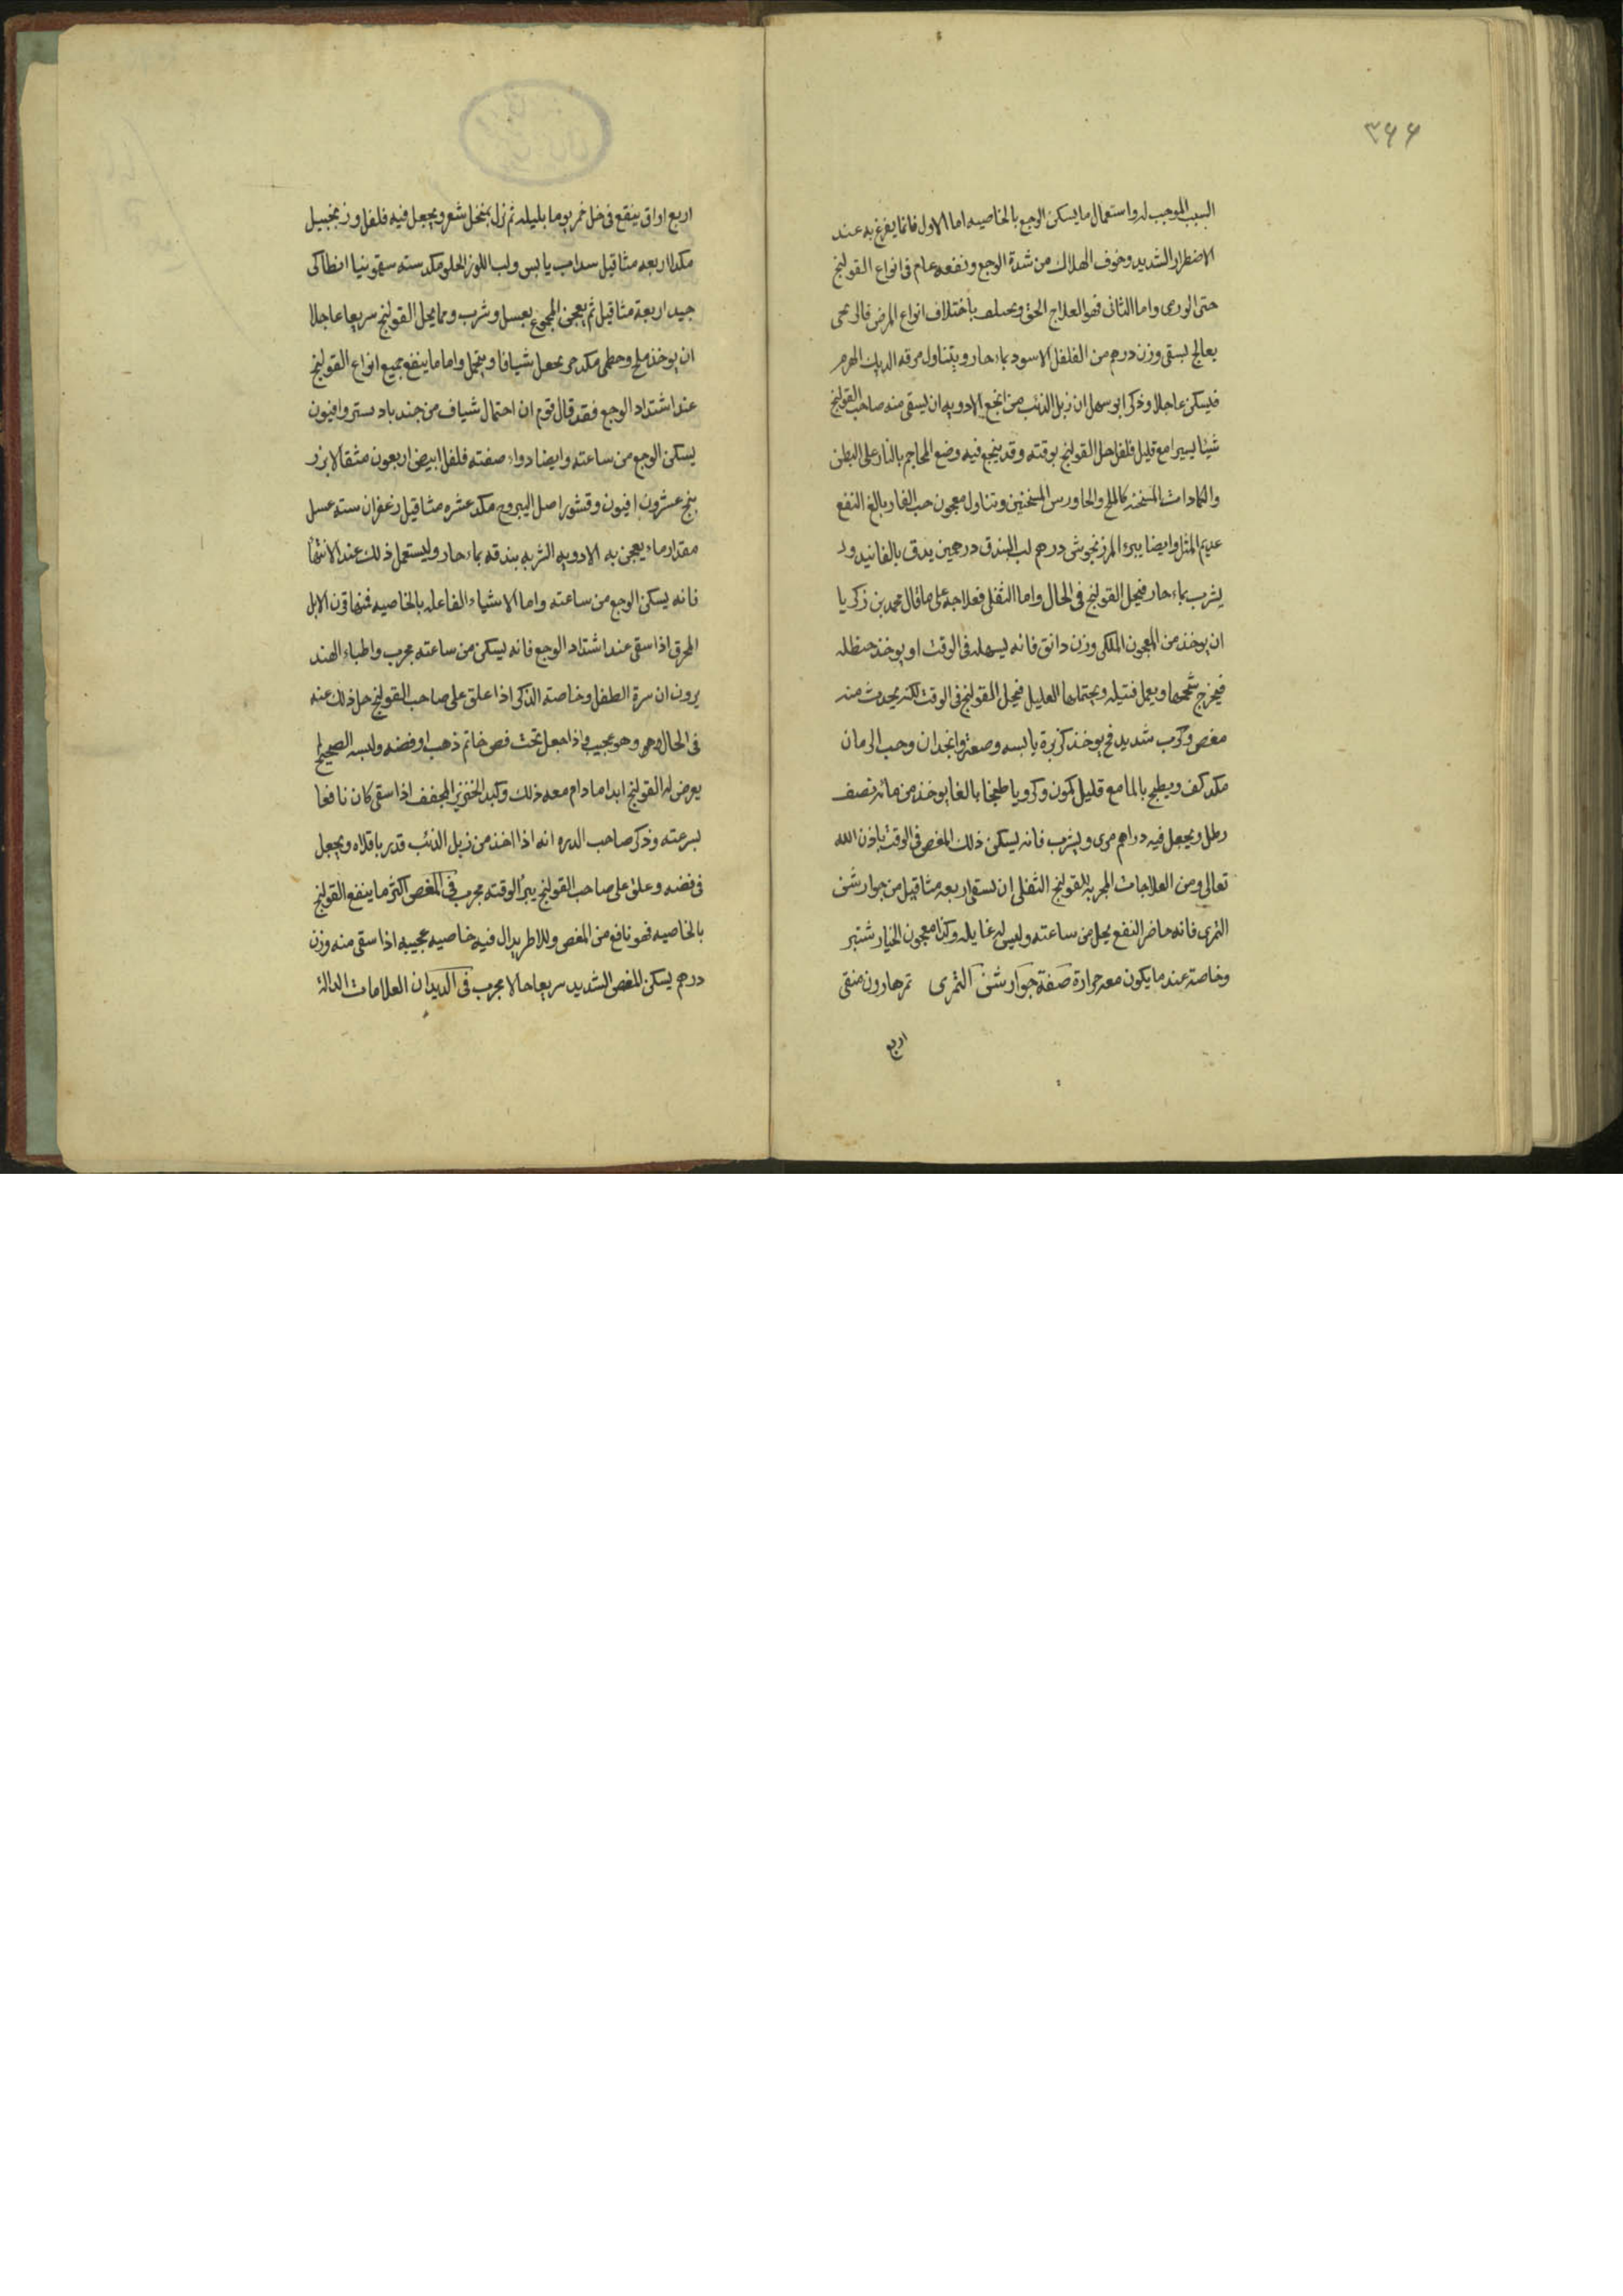 ٣٤٤
السبب الموجب له واستعمال ما يسكن الوجع بالخاصيه اما الاول فانما يفزع به عند
الاضطرار الشديد وخوف الهلاك من شدة الوجع ونفعه عام فى انواع القولنج
حتى الورمى واما الثانى فهو العلاج الحق ويختلف باختلاف انواع المرض فالريحى
يعالج بسقى وزن درهم من الفلفل الاسود بماء حار ويتناول مرقه الديك الهرم
فيسكن عاجلا وذكر ابو سهل ان زبل الذئب من انجع الادويه ان يسقى منه صاحب القولنج
شيئا يسيرا مع قليل فلفل حل القولنج بوقته وقد ينجع فيه وضع المحاجم بالنار على البطن
والكمادات المسخنه كالملح والجاورس المسخنين وتناول معجون حب الغار بالغ النفع
عديم المثل وايضا يبرء المرزنجوش درهم لب البندق درهمين يدق بالفانيد و
يشرب بماء حار فيحل القولنج فى الحال واما الثفلى فعلاجه على ما قال محمد بن زكريا
ان يوخذ من المعجون الملكى وزن دانق فانه يسهله فى الوقت او يوخذ حنظله
فيخرج شحمها ويعمل فتيله ويحتملها العليل فيحل القولنج فى الوقت لكنه يحدث منه
مغص وكرب شديد فح يوخذ كزبرة يابسه وصعتر وانجدان وحب الرمان
مكد كف ويطبخ بالما مع قليل كمون وكرويا طبخا بالغا يوخذ من مائه نصف
رطل ويجعل فيه دراهم مرى ويشرب فانه يسكن ذلك المغص فى الوقت باذن الله
تعالى ومن العلاجات المجربه للقولنج الثفلى ان يسقى اربعه مثاقيل من جوارشن
التمرى فانه حاضر النفع يحل من ساعته وليس له غايله وكذا معجون الخيار شنبر
وخاصة عند ما يكون معه حرارة صفة جوارشن التمرى تمر هارون منقى
اربع
اربع اواق ينقع فى خل خمر يوما بليله ثم نزل بمنخل شعر ويجعل فيه فلفل وزنجبيل
مكد اربعه مثاقيل سداب يابس ولب اللوز الحلو مكد سته سقمونيا انطاكى
جيد اربعة مثاقيل ثم يعجن المجموع بعسل وشرب ومما يحل القولنج سريعا عاجلا
ان يوخذ ملح وخطمى مكد جز يجعل شيافا ويتحمل واما ما ينفع جميع انواع القولنج
عند اشتداد الوجع فقد قال قوم ان احتمال شياف من جند بادستر وافيون
يسكن الوجع من ساعته وايضا دواء صفته فلفل ابيض اربعون مثقالا بزر
بنج عشرون افيون وقشور اصل اليبروح مكد عشره مثاقيل زعفران سته عسل
مقدار ماء يعجن به الادويه الشربه بندقه بماء حار وليستعمل ذلك عند الانتها
فانه يسكن الوجع من ساعته واما الاشياء الفاعله بالخاصيه فمنها قرن الايل
المحرق اذا سقى عند اشتداد الوجع فانه يسكن من ساعته مجرب واطباء الهند
يرون ان سرة الطفل وخاصته الذكر اذا علق على صاحب القولنج حل ذلك عنه
فى الحال وهو عجيب واذا جعل تحت فص خاتم ذهب او فضه ولبسه الصحيح لم
يعرض له القولنج ابدا ما دام معه ذلك وكبد الخنزير المجفف اذا سقى كان نافعا
بسرعته وذكر صاحب الدره انه اذا اخذ من زبل الذئب قدر باقلاه ويجعل
فى فضه وعلق على صاحب القولنج يبرأ لوقته مجرب فى المغص اكثر ما ينفع القولنج
بالخاصيه فهو نافع من المغص وللاطريدال فيه خاصيه عجيبه اذا سقى منه وزن
درهم يسكن المغص الشديد سريعا حالا مجرب فى الديدان العلامات الدالة